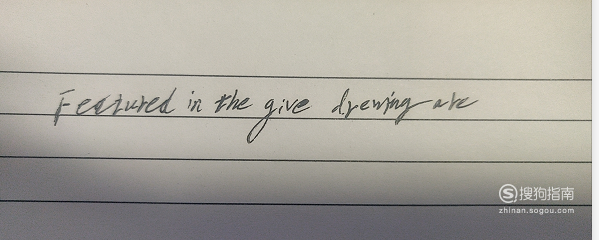 Featured in the give drewing are
搜狗指南
zhinan.sogou.com